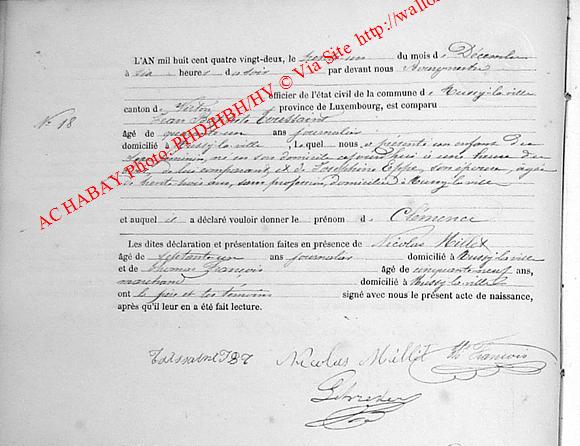 L'AN mil huit cent quatre vingt-deux, le trente un du mois de Décembre
à six heures du soir par devant nous Bourgmestre
officier de l'état civil de la commune de Mussy-la-ville
canton de Virton province de Luxembourg, est comparu
N° 18
Jean Toussaint
âgé de ans journalier
domicilié à Mussy-la-ville, Lequel nous a présenté un enfant du
sexe féminin, né en son domicile à une heure du
de lui comparant, et de Joséphine Eppe, son épouse, âgée
de trente trois ans, sans profession, domiciliée à Mussy-la-ville
et auquel il a déclaré vouloir donner le prénom de Clémence
Les dites déclaration et présentation faites en présence de Nicolas Millet
âgé de septante un ans journalier domicilié à Mussy-la-ville
et de Thomas François âgé de cinquante neuf ans,
marchand domicilié à Mussy-la-ville
ont le père et les témoins signé avec nous le présent acte de naissance,
après qu'il leur en a été fait lecture.
Toussaint J B T Nicolas Millet Th François
AC HABAY Photo: PHD/HBH/HV © Via Site http://wallo